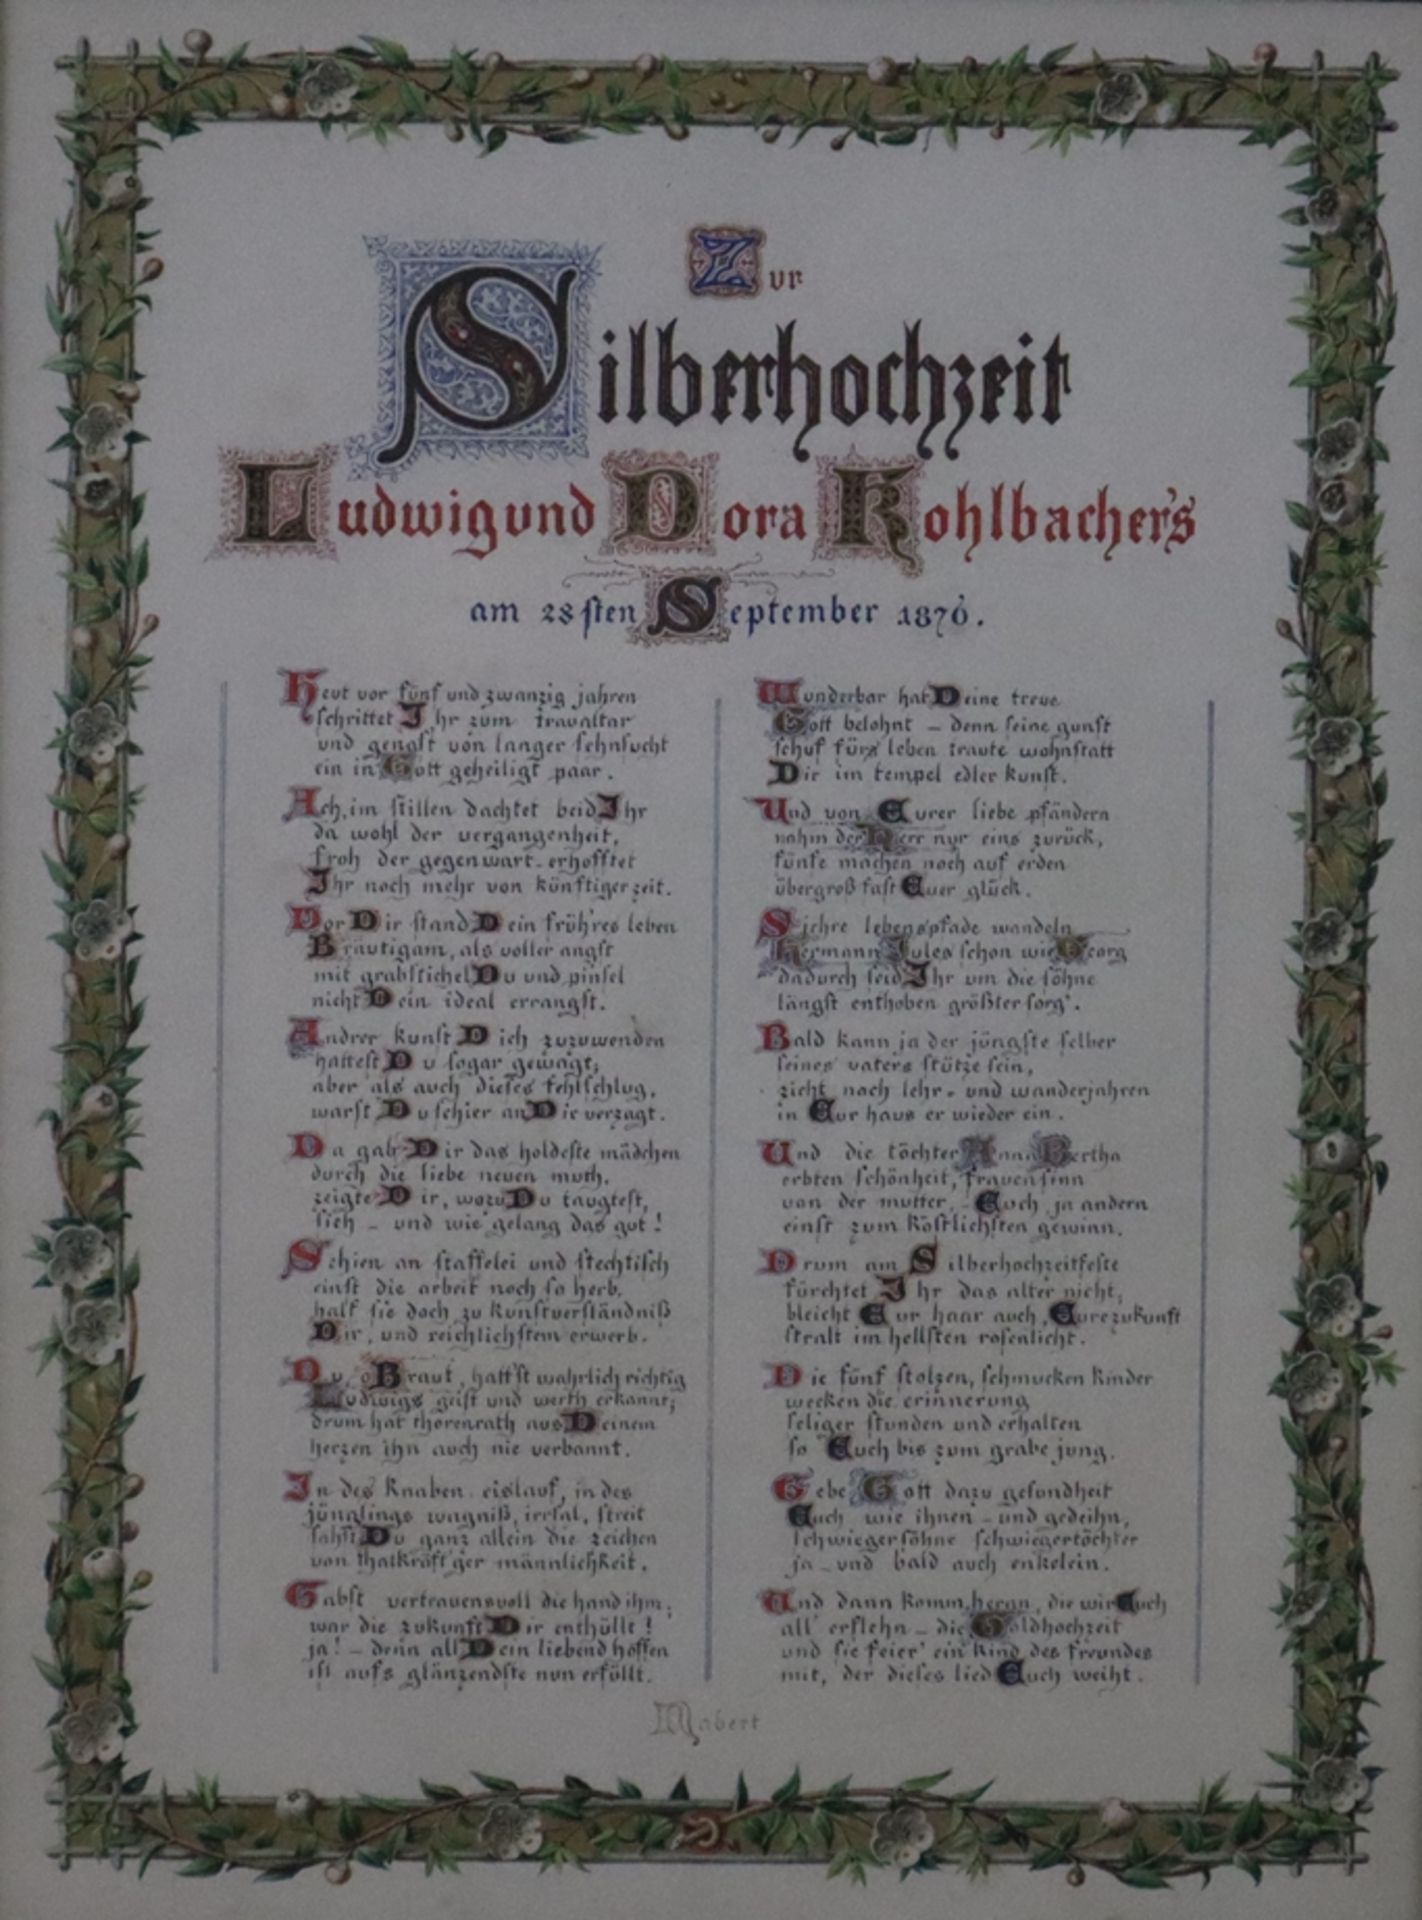 Zur
Silberhochzeit
Ludwig und Dora Kohlbacher's
am 28sten September 1876.
Heut vor fünf und zwanzig jahren
schrittet Ihr zum traualtar
und genast von langer sehnsucht
ein in Gott geheiligt paar.
Ach, im stillen dachtet beid Ihr
da wohl der vergangenheit,
froh der gegenwart erhofftet
Ihr noch mehr von künftiger zeit.
Vor Dir stand Dein früh'res leben
Bräutigam, als voller angst
mit grabstichel Du und pinsel
nicht Dein ideal errangst.
Andrer kunst Dich zuzuwenden
hattest Du sogar gewagt;
aber als auch dieses fehlschlug,
warst Du schier an Dir verzagt.
Da gab Dir das holdeste mädchen
durch die liebe neuen muth,
zeigte Dir, wozu Du taugtest,
sich – und wie gelang das gut!
Schien an staffelei und stechtisch
einst die arbeit noch so herb,
half sie doch zu kunstverständniß
Dir, und reichlichstem erwerb.
Du, o Braut, hatt'st wahrlich richtig
Ludwigs geist und werth erkannt;
drum hat thorenrath aus Deinem
herzen ihn auch nie verbannt.
In des knaben eislauf, in des
jünglings wagniß, irrsal, streit
sahst Du ganz allein die zeichen
von thatkräft'ger männlichkeit.
Gabst vertrauensvoll die hand ihm;
war die zukunft Dir enthüllt!
ja! – denn all Dein liebend hoffen
ist aufs glänzendste nun erfüllt.
Wunderbar hat Deine treue
Gott belohnt – denn seine gunst
schuf fürs leben traute wohnstatt
Dir im tempel edler kunst.
Und von Eurer liebe pfändern
nahm der Herr nur eins zurück,
fünfe machen noch auf erden
übergroß fast Euer glück.
Sichre lebenspfade wandeln
Hermann Jules schon wie Georg
dadurch seid Ihr um die söhne
längst enthoben größter sorg'.
Bald kann ja der jüngste selber
seines vaters stütze sein,
zieht nach lehr- und wanderjahren
in Eur haus er wieder ein.
Und die töchter Anna Bertha
erbten schönheit, frauensinn
von der mutter, – Euch ja andern
einst zum köstlichsten gewinn.
Drum am Silberhochzeitfeste
fürchtet Ihr das alter nicht;
bleicht Eur haar auch, Eure zukunft
stralt im hellsten rosenlicht.
Die fünf stolzen, schmucken kinder
wecken die erinnerung
seliger stunden und erhalten
so Euch bis zum grabe jung.
Gebe Gott dazu gesundheit
Euch wie ihnen – und gedeihn,
schwiegersöhne schwiegertöchter
ja – und bald auch enkelein.
Und dann komm heran, die wir Euch
all' erflehn – die Goldhochzeit
und sie feier' ein kind des freundes
mit, der dieses lied Euch weiht.
Mabert